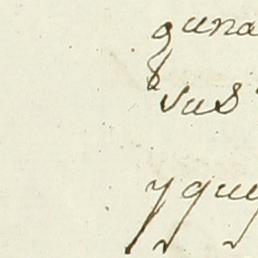 guna
sus
y que